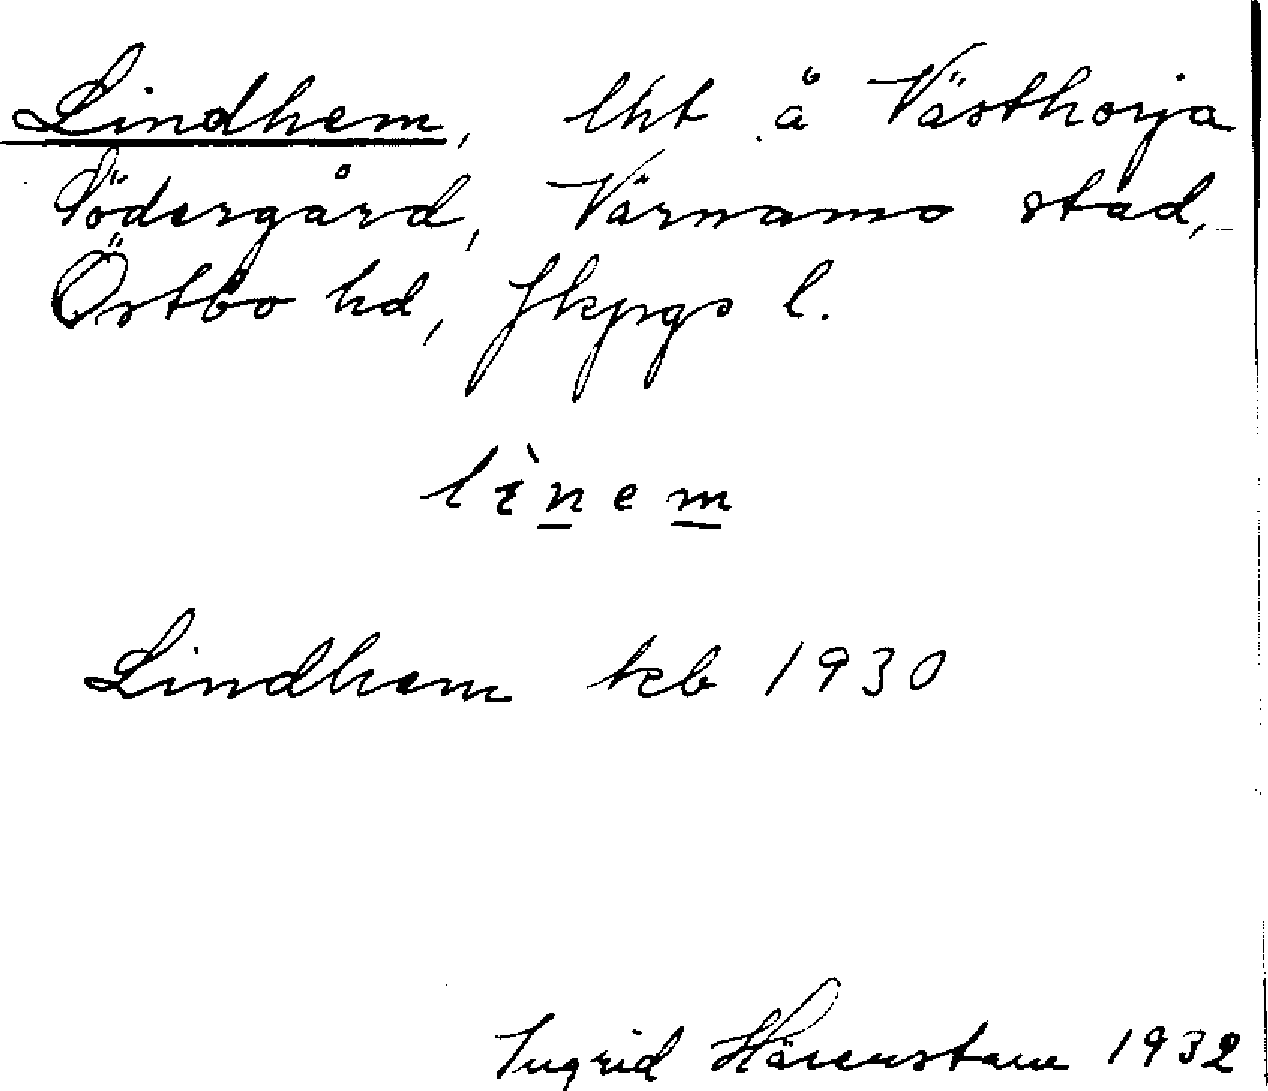 Lindhem, lht å Västhorja
Södergård, Värnamo stad,
Östbo hd, Jkpgs l.
lìnem
Lindhem kb 1930
Ingrid Härenstam 1932